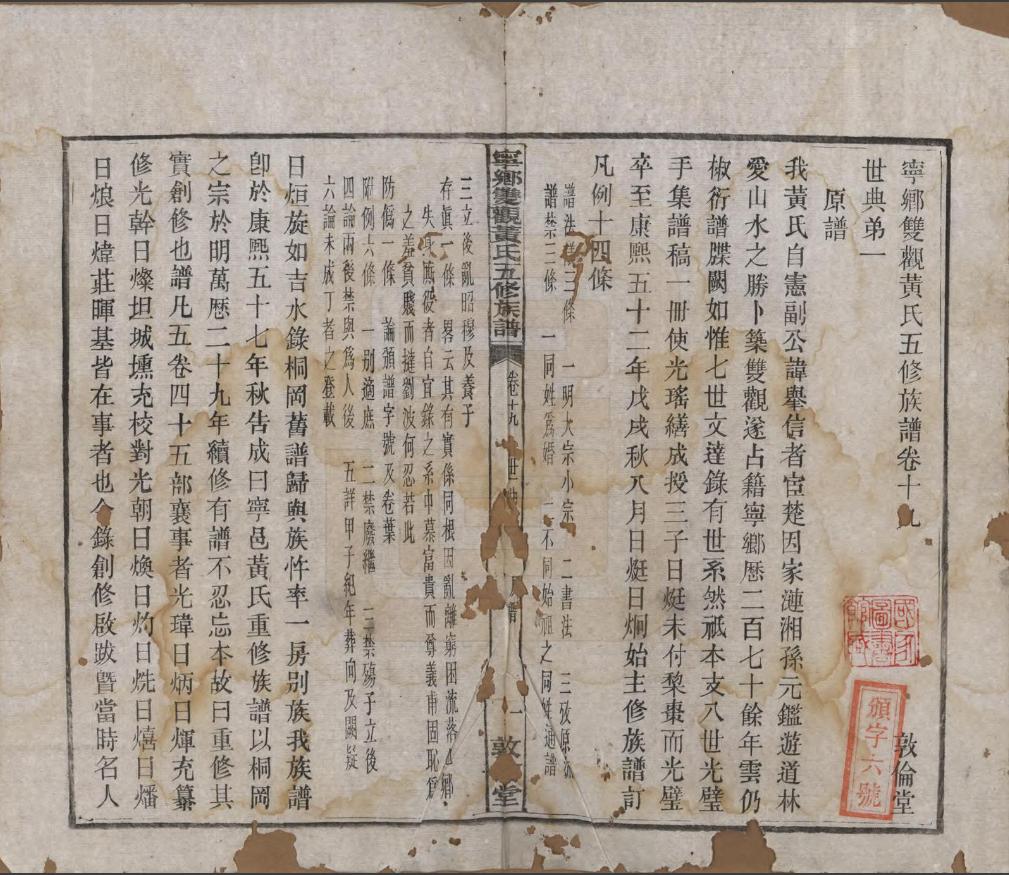 寧鄉雙觀黃氏五修族譜卷十九
敦倫堂
世典弟一
原譜
我黃氏自憲副公諱舉信者宦楚因家漣湘孫元鑑遊道林
愛山水之勝卜築雙觀遂占籍寧鄉歷二百七十餘年雲仍
椒衍譜牒闕如惟七世文達錄有世系然祇本支八世光璧
手集譜稿一冊使光瑤繕成授三子日烶未付棃棗而光璧
卒至康熙五十二年戊戌秋八月日烶日炯始主修族譜訂
凡例十四條
譜法三條 一明大宗小宗 二書法 三攷原流
譜禁三條 一同姓爲婚 二不同始祖之同姓通譜
三立後亂昭穆及養子
存眞一條 畧云其有實係同根因亂離窮困流落
失身賤役者自宜錄之系中慕富貴而尊義甫固恥爲
之羞貧賤而撻劉波何忍若此
防僞一條 論頒譜字號及卷葉
附例六條 一別適庶 二禁廢繼 三禁殤子立後
四論兩後禁與爲人後 五詳甲子紀年葬向及闕疑
六論未成丁者之登載
日烜旋如吉水錄桐岡舊譜歸與族忤率一房別族我族譜
卽於康熙五十七年秋告成曰寧邑黃氏重修族譜以桐岡
之宗於明萬歷二十九年續修有譜不忍忘本故曰重修其
實創修也譜凡五卷四十五部襄事者光瑋日炳日煇充纂
修光幹日燦坦城壎充校對光朝日煥日灼日烍日熺日燔
日烺日煒莊暉基皆在事者也今錄創修敘跋曁當時名人
寧鄉雙觀黃氏五修族譜
卷十九
世典
敦 堂
頒字六號